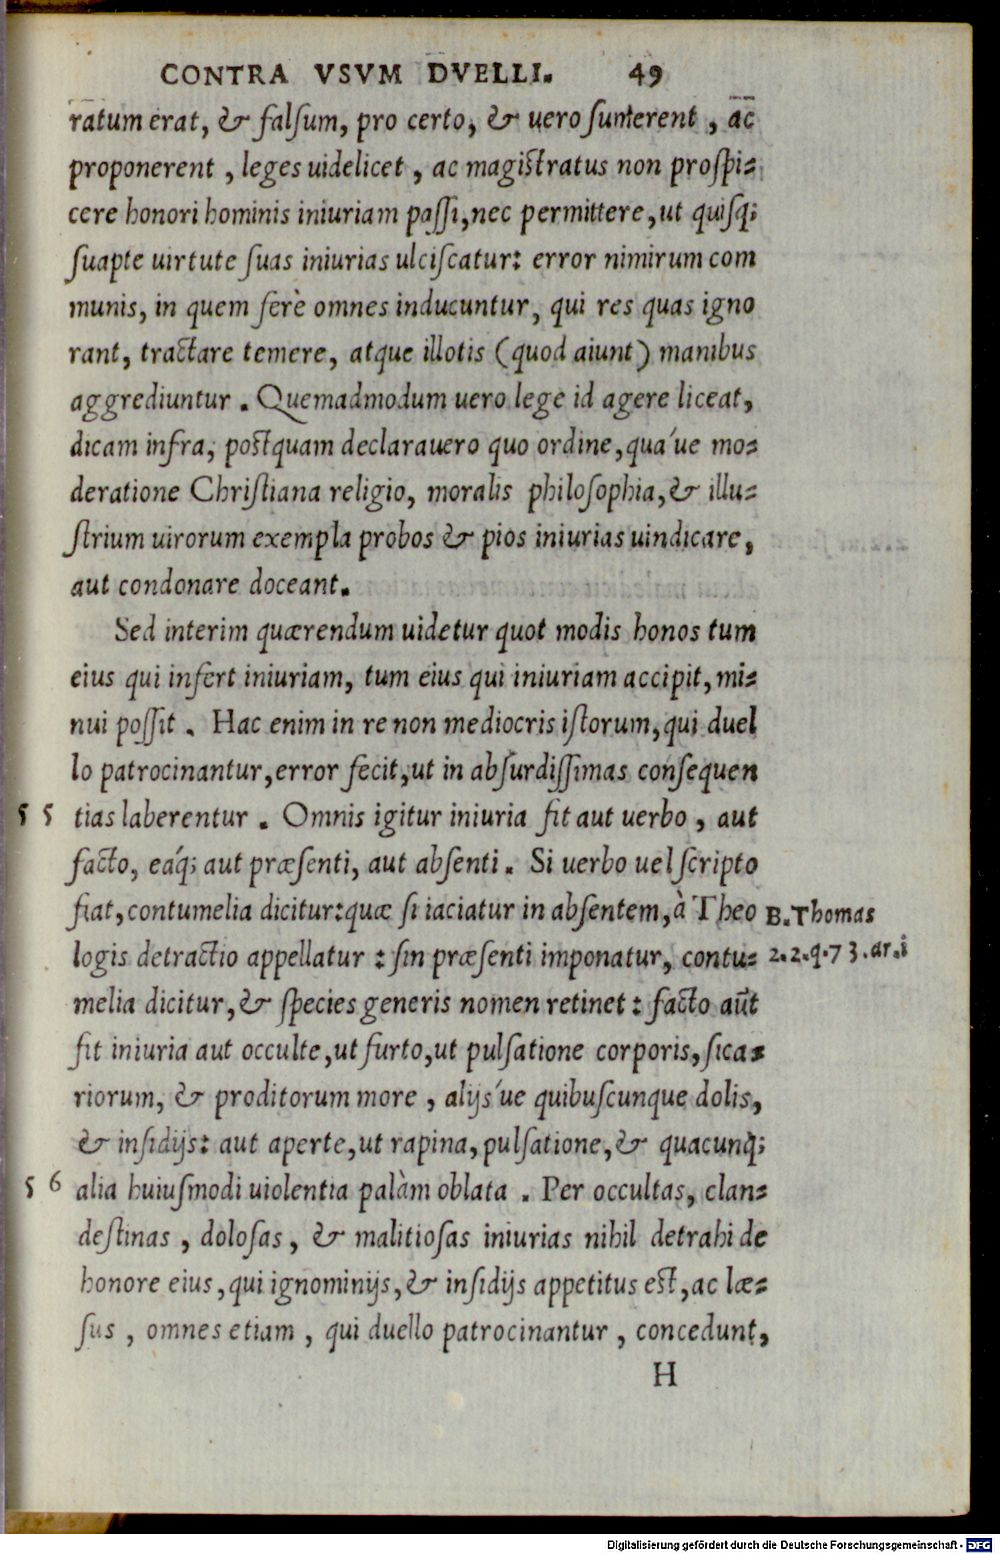 CONTRA VSVM DVELLI. 49
ratum erat, & falsum, pro certo, & uero sumerent, ac
proponerent, leges uidelicet, ac magistratus non prospi=
cere honori hominis iniuriam passi, nec permittere, ut quisq;
suapte uirtute suas iniurias ulciscatur: error nimirum com
munis, in quem ferè omnes inducuntur, qui res quas igno
rant, tractare temere, atque illotis (quod aiunt) manibus
aggrediuntur. Quemadmodum uero lege id agere liceat,
dicam infra, postquam declarauero quo ordine, qua'ue mo=
deratione Christiana religio, moralis philosophia, & illu=
strium uirorum exempla probos & pios iniurias uindicare,
aut condonare doceant.
Sed interim quærendum uidetur quot modis honos tum
eius qui infert iniuriam, tum eius qui iniuriam accipit, mi=
nui possit. Hac enim in re non mediocris istorum, qui duel
lo patrocinantur, error fecit, ut in absurdissimas consequen
55 tias laberentur. Omnis igitur iniuria fit aut uerbo, aut
facto, eáq; aut præsenti, aut absenti. Si uerbo uel scripto
fiat, contumelia dicitur: quæ si iaciatur in absentem, à Theo
B. Thomas
logis detractio appellatur: sin præsenti imponatur, contu=
2.2.q.73.ar.i
melia dicitur, & species generis nomen retinet: facto aūt
fit iniuria aut occulte, ut furto, ut pulsatione corporis, sica=
riorum, & proditorum more, alijs'ue quibuscunque dolis,
& insidijs: aut aperte, ut rapina, pulsatione, & quacunq;
56 alia huiusmodi uiolentia palàm oblata. Per occultas, clan=
destinas, dolosas, & malitiosas iniurias nihil detrahi de
honore eius, qui ignominijs, & insidijs appetitus est, ac læ=
sus, omnes etiam, qui duello patrocinantur, concedunt,
H
Digitalisierung gefördert durch die Deutsche Forschungsgemeinschaft - DFG